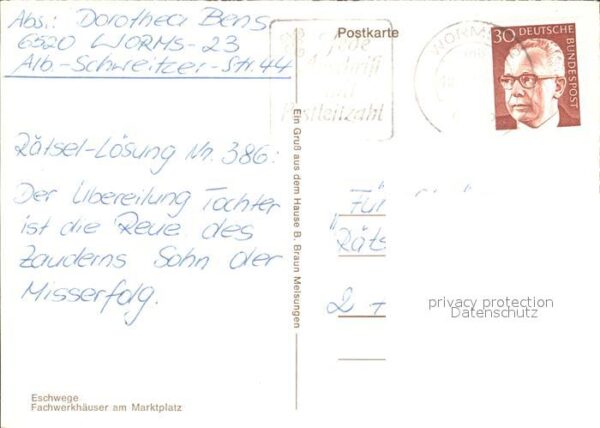 Abs.: Dorothea Bens
6520 WORMS-23
Alb.-Schweitzer-Str. 44
Postkarte
30 DEUTSCHE BUNDESPOST
WORMS
Postleitzahl
Rätsel-Lösung Nr. 386:
Der Übereilung Tochter
ist die Reue des
Zauderns Sohn der
Misserfolg.
Ein Gruß aus dem Hause B. Braun Melsungen
2
privacy protection
Datenschutz
Eschwege
Fachwerkhäuser am Marktplatz